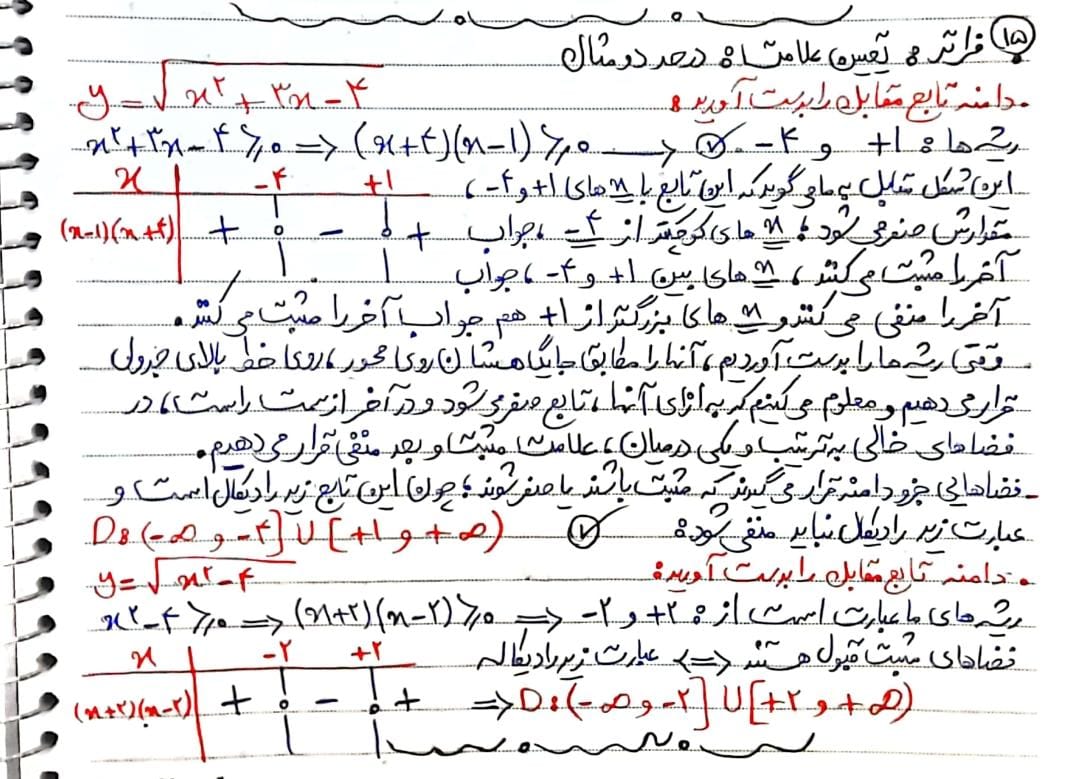 ۱۵ فراتر: تعیین علامت: در حد دو مثال
. دامنه تابع مقابل را بدست آورید: y = √x² + ۳x - ۴
x² + ۳x - ۴ ≥ ۰ ⟹ (x+۴)(x-۱) ≥ ۰ ⟶ ✓ ریشه‌ها: +۱ و -۴
این شکل مقابل به ما می گوید که این تابع با x های +۱ و -۴،
مقدارش صفر می شود؛ x های کوچکتر از -۴، جواب
آخر را مثبت می کنند، x های بین +۱ و -۴، جواب
x -۴ +۱
(x-۱)(x+۴) + ۰ - ۰ +
آخر را منفی می کنند و x های بزرگتر از +۱ هم جواب آخر را مثبت می کنند.
وقتی ریشه ها را بدست آوردیم، آنها را مطابق جایگاهشان روی محور، روی خط بالای جدول
قرار می دهیم و معلوم می کنیم که به ازای آنها، تابع صفر می شود و در آخر از سمت راست، در
فضاهای خالی به ترتیب و یکی در میان، علامت مثبت و بعد منفی قرار می دهیم.
- فضاهایی جزو دامنه قرار می گیرند که مثبت باشند یا صفر شوند؛ چون این تابع زیر رادیکال است و
عبارت زیر رادیکال نباید منفی شود: ✓ D: (-∞ و -۴] ∪ [+۱ و +∞)
. دامنه تابع مقابل را بدست آورید: y = √x² - ۴
x² - ۴ ≥ ۰ ⟹ (x+۲)(x-۲) ≥ ۰ ⟹ ریشه های ما عبارت است از: +۲ و -۲
فضاهای مثبت قبول هستند ⟸⟹ عبارت زیر رادیکاله
x -۲ +۲
(x+۲)(x-۲) + ۰ - ۰ +
⟹ D: (-∞ و -۲] ∪ [+۲ و +∞)